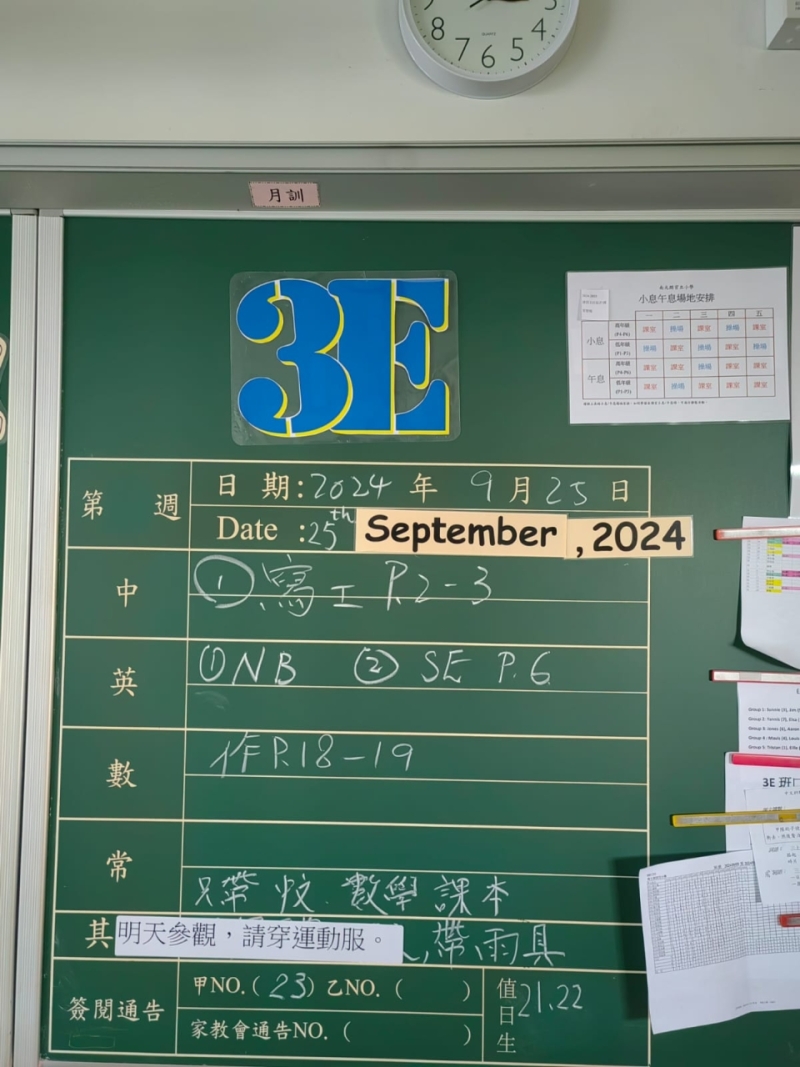 8 7 6 5 4 3
月訓
3E
小息午息場地安排
一 二 三 四 五
小息
高年級 課室 操場 課室 操場 課室
(P4-P6)
低年級 操場 課室 操場 課室 操場
(P1-P3)
午息
高年級 課室 課室 操場 課室 課室
(P4-P6)
低年級 課室 操場 課室 課室 課室
(P1-P3)
第 週
日 期:2024 年 9 月 25 日
Date :25th September ,2024
中
① 寫工 P.2-3
英
① NB ② SE P.6
數
作 P.18-19
常
只帶 數學課本
其
明天參觀，請穿運動服。
帶雨具
簽閱通告
甲NO.(23) 乙NO.( )
家教會通告NO.( )
值日生
21,22
3E 班